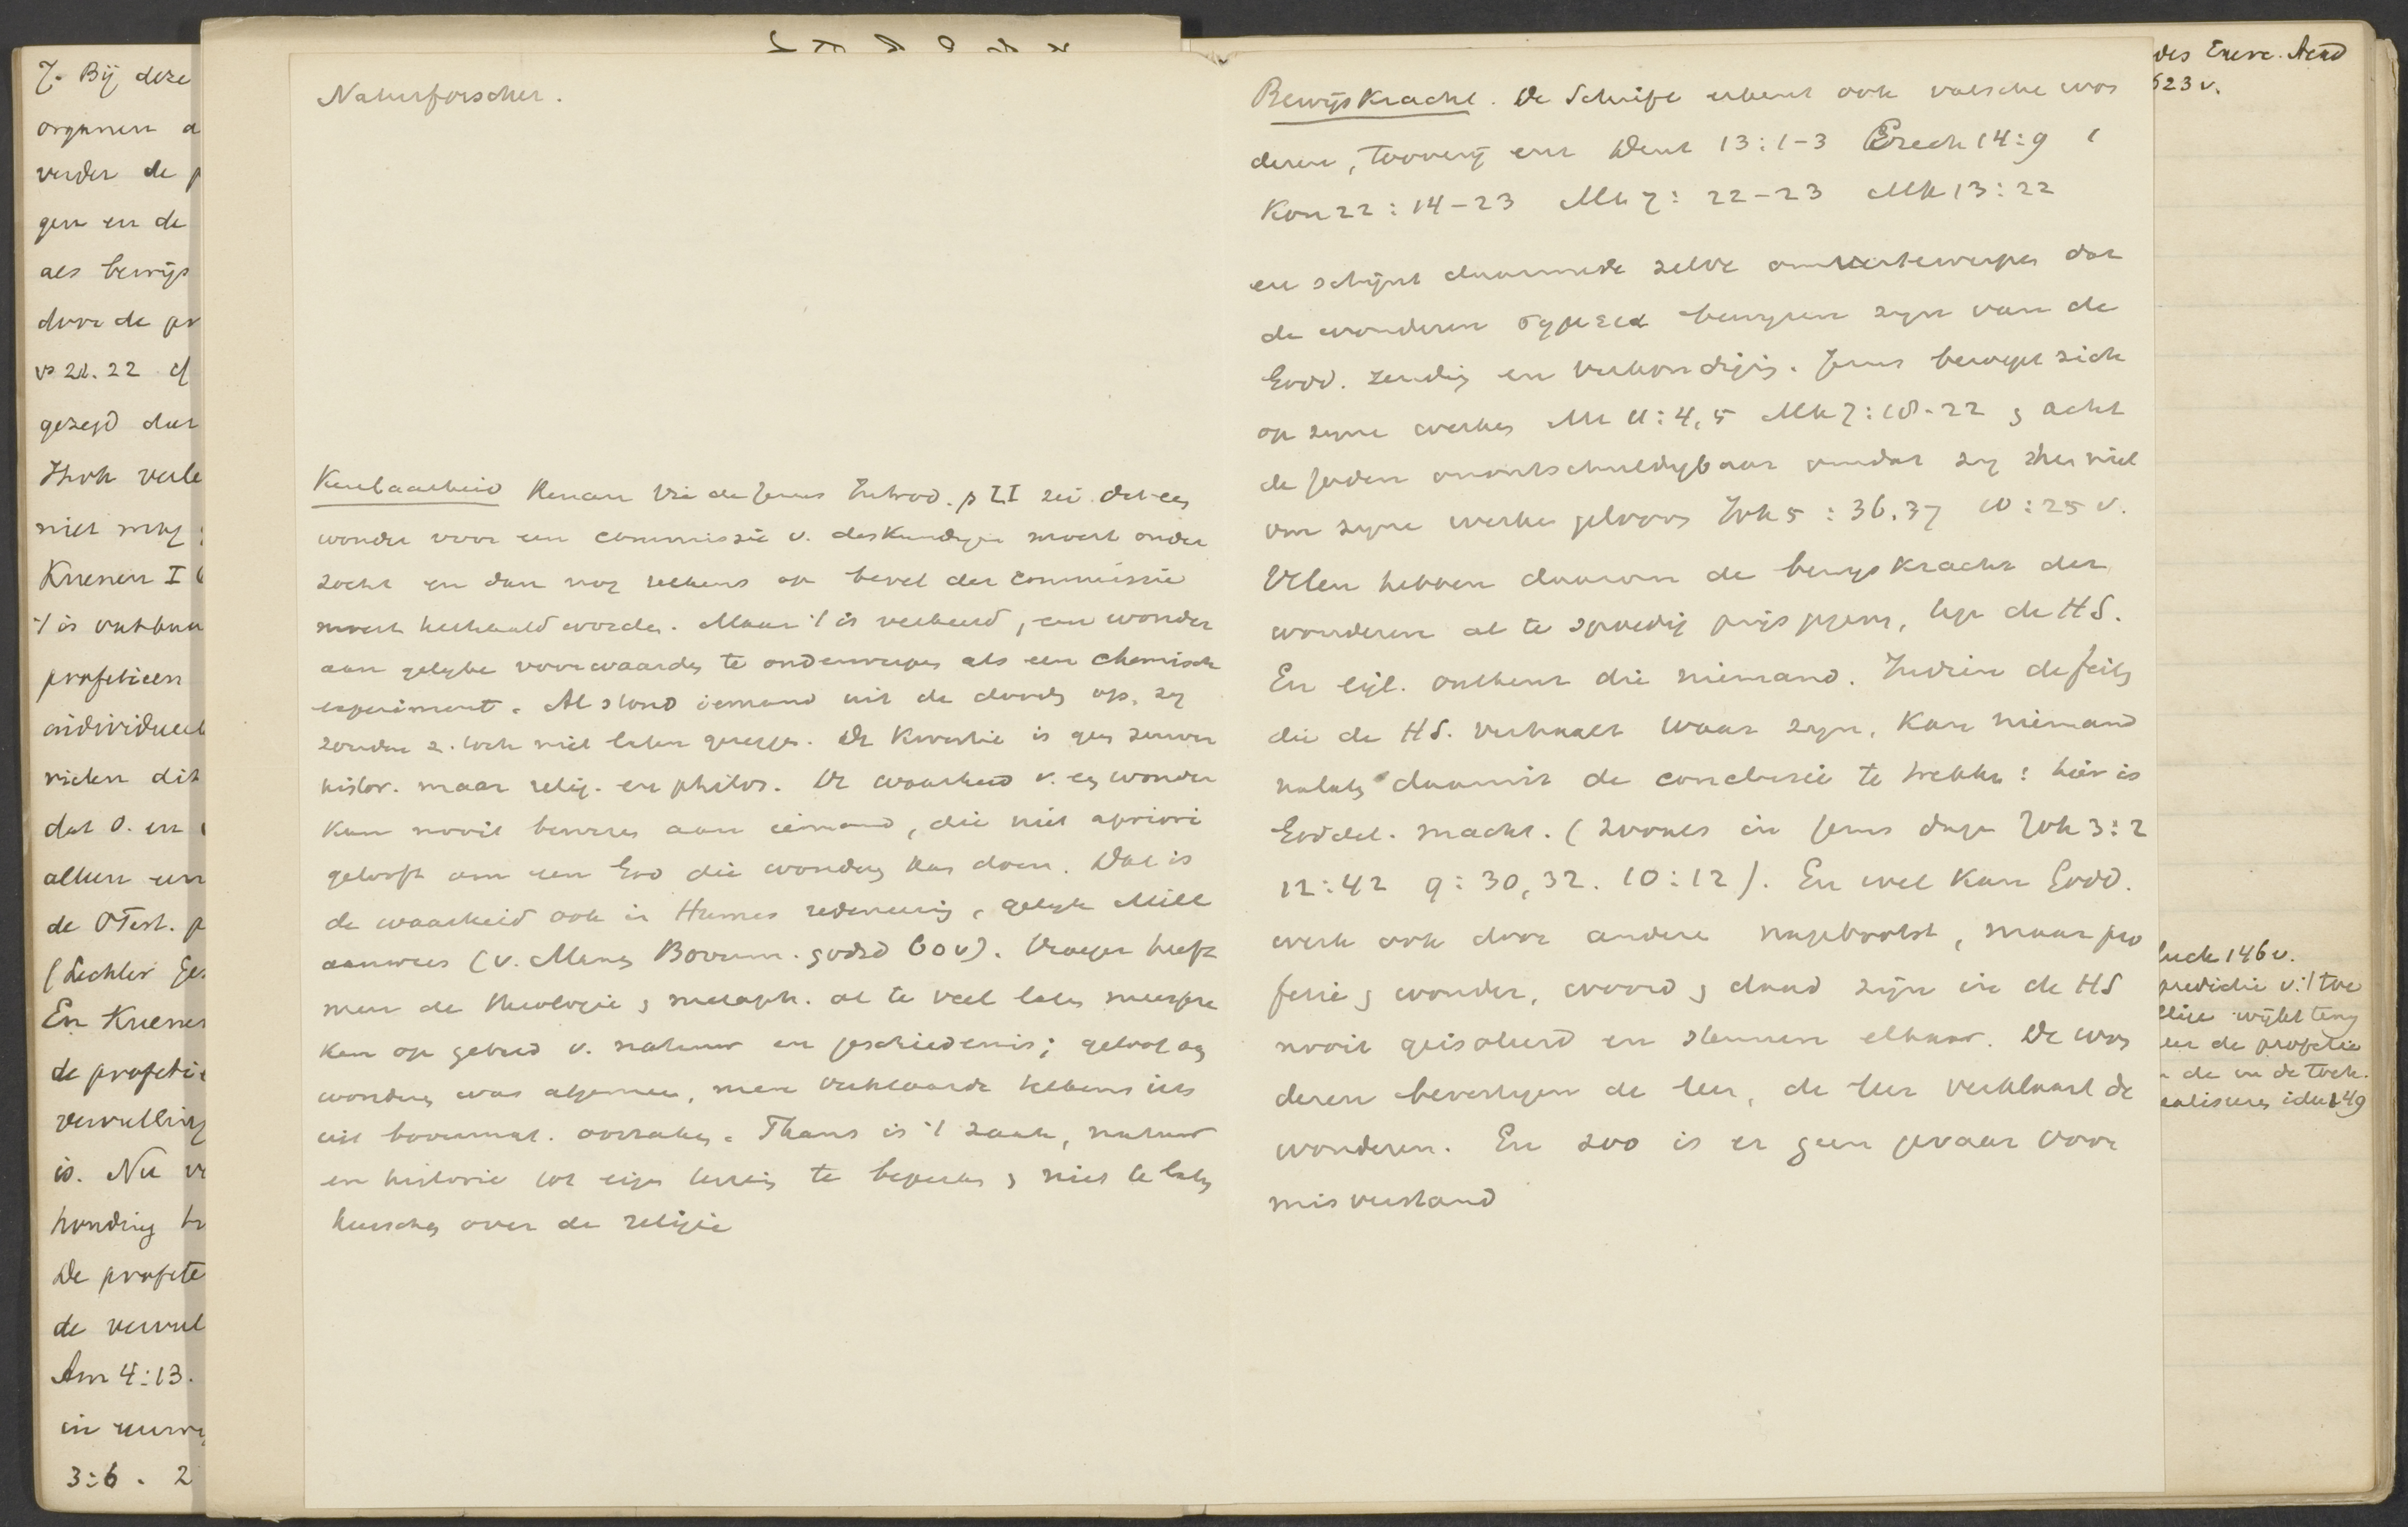 7. Bij deze
organen a
verder de p
gen en de
als bewijs
door de pr
vs 21.22 cf
gezegd dat
niet mag
Kuenen I
't is ontken
profetieen
individueel
dat O. en
alleen een
de OTest. p
(Lechler Ges
En Kuenen
de profetie
vervulling
is. Nu ve
houding
De profete
de vervul
Am 4:13.
in
3:6. 2
Naturforscher.
Kenbaarheid Renan Vie de Jesus Introd. p LI zei. dat een
wonder voor een commissie v. deskundigen moest onder
zocht en dan nog telkens op bevel der commissie
moest herhaald worden. Maar 't is verkeerd, een wonder
aan gelijke voorwaarden te onderwerpen als een chemisch
experiment. Al stond iemand uit de dooden op, zij
zouden z. toch niet laten gezeggen. De kwestie is geen zuiver
histor. maar relig. en philos. De waarheid v. een wonder
kan nooit bewezen aan iemand, die niet apriori
gelooft aan een God die wonderen kan doen. Dat is
de waarheid ook in Humes redeneering, gelijk Mill
aanwees (v. Manen Bovenn. godsd 60v). Vroeger heeft
men de theologie & metaph. al te veel laten meespre
ken op gebied v. natuur en geschiedenis; geloof aan
wonderen was algemeen, men verklaarde telkens iets
uit bovennat. oorzaken. Thans is 't zaak, natuur
en historie tot eigen terrein te beperken & niet te laten
heerschen over de religie
Bewijskracht. De Schrift erkent ook valsche won
deren, tooverij enz Deut 13:1-3 Ezech 14:9 1
Kon 22:14-23 Mt 7:22-23 Mk 13:22
en schijnt daarmede zelve omvertewerpen dat
de wonderen σημεια bewijzen zijn van de
Godd. zending en verkondiging. Jezus beroept zich
op zijne werken Mt 11:4,5 Mk 7:18-22 & acht
de Joden onontschuldigbaar omdat zij zhm niet
om zijne werken gelooven Joh 5:36.37 10:25 v.
Velen hebben daarom de bewijskracht der
wonderen al te spoedig prijs gegeven, tegen de HS.
En eigl. ontkent die niemand. Indien de feiten
die de HS. verhaalt waar zijn, kan niemand
nalaten daaruit de conclusie te trekken: hier is
Goddel. macht. (zooals in Jezus dagen Joh 3:2
12:42 9:30,32. 10:12). En wel kan Godd.
werk ook door andere nagebootst, maar pro
fetie & wonder, woord & daad zijn in de HS
nooit geisoleerd en steunen elkaar. De won
deren bevestigen de leer, de leer verklaart de
wonderen. En zoo is er geen gevaar voor
misverstand
des Exerc. Acad
523 v.
luck 146v.
predictie v. 't toe
er de profetie
de in de toek.
ealiseren idee 149